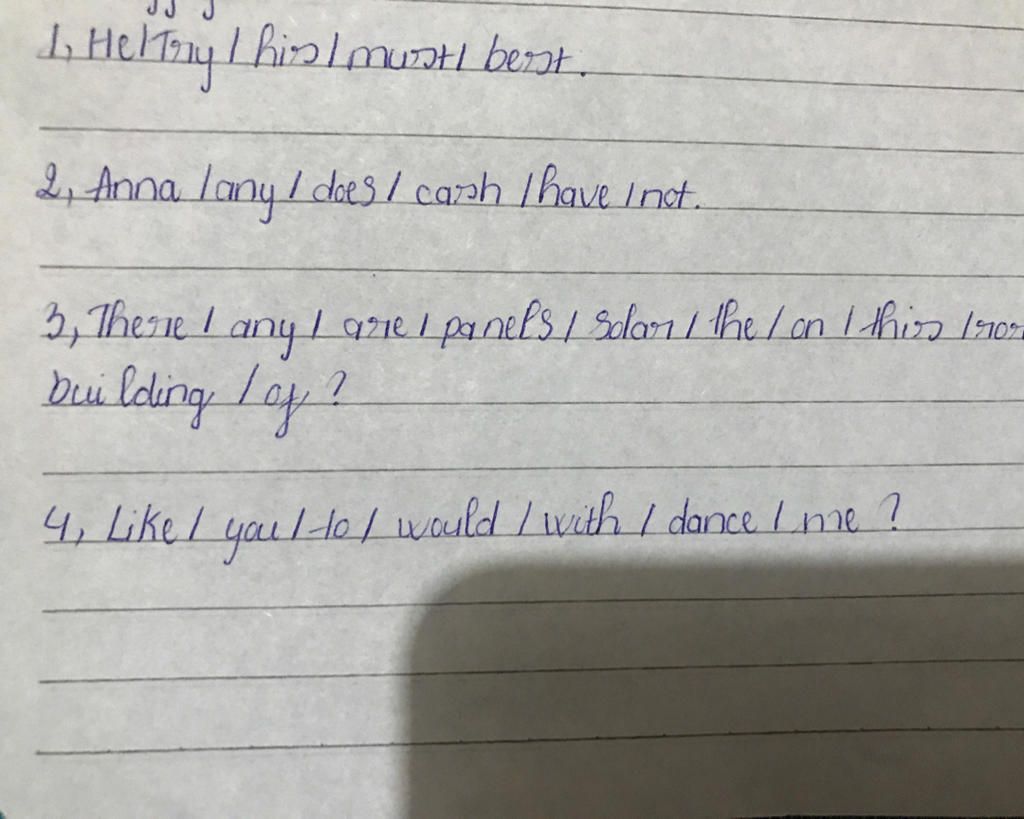 1, He / Try / his / must / best.
2, Anna / any / does / cash / have / not.
3, There / any / are / panels / solar / the / on / this /
building / of ?
4, Like / you / to / would / with / dance / me ?